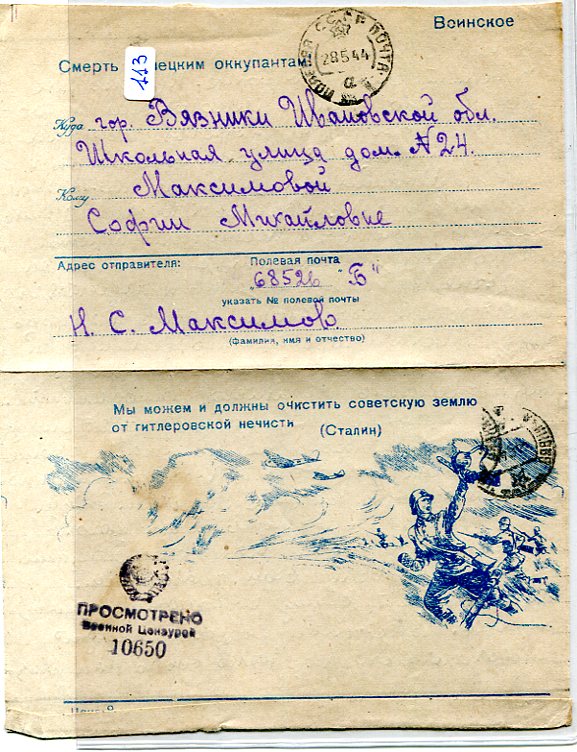 Воинское
Смерть немецким оккупантам
113
СССР ПОЧТА
28 5 44
а
Куда гор. Вязники Ивановской обл.
Школьная улица дом № 24.
Кому Максимовой
Софии Михайловне
Адрес отправителя: Полевая почта
68526 "Б"
указать № полевой почты
Н. С. Максимов
(фамилия, имя и отчество)
Мы можем и должны очистить советскую землю
от гитлеровской нечисти (Сталин)
ПРОСМОТРЕНО
Военной Цензурой
10650